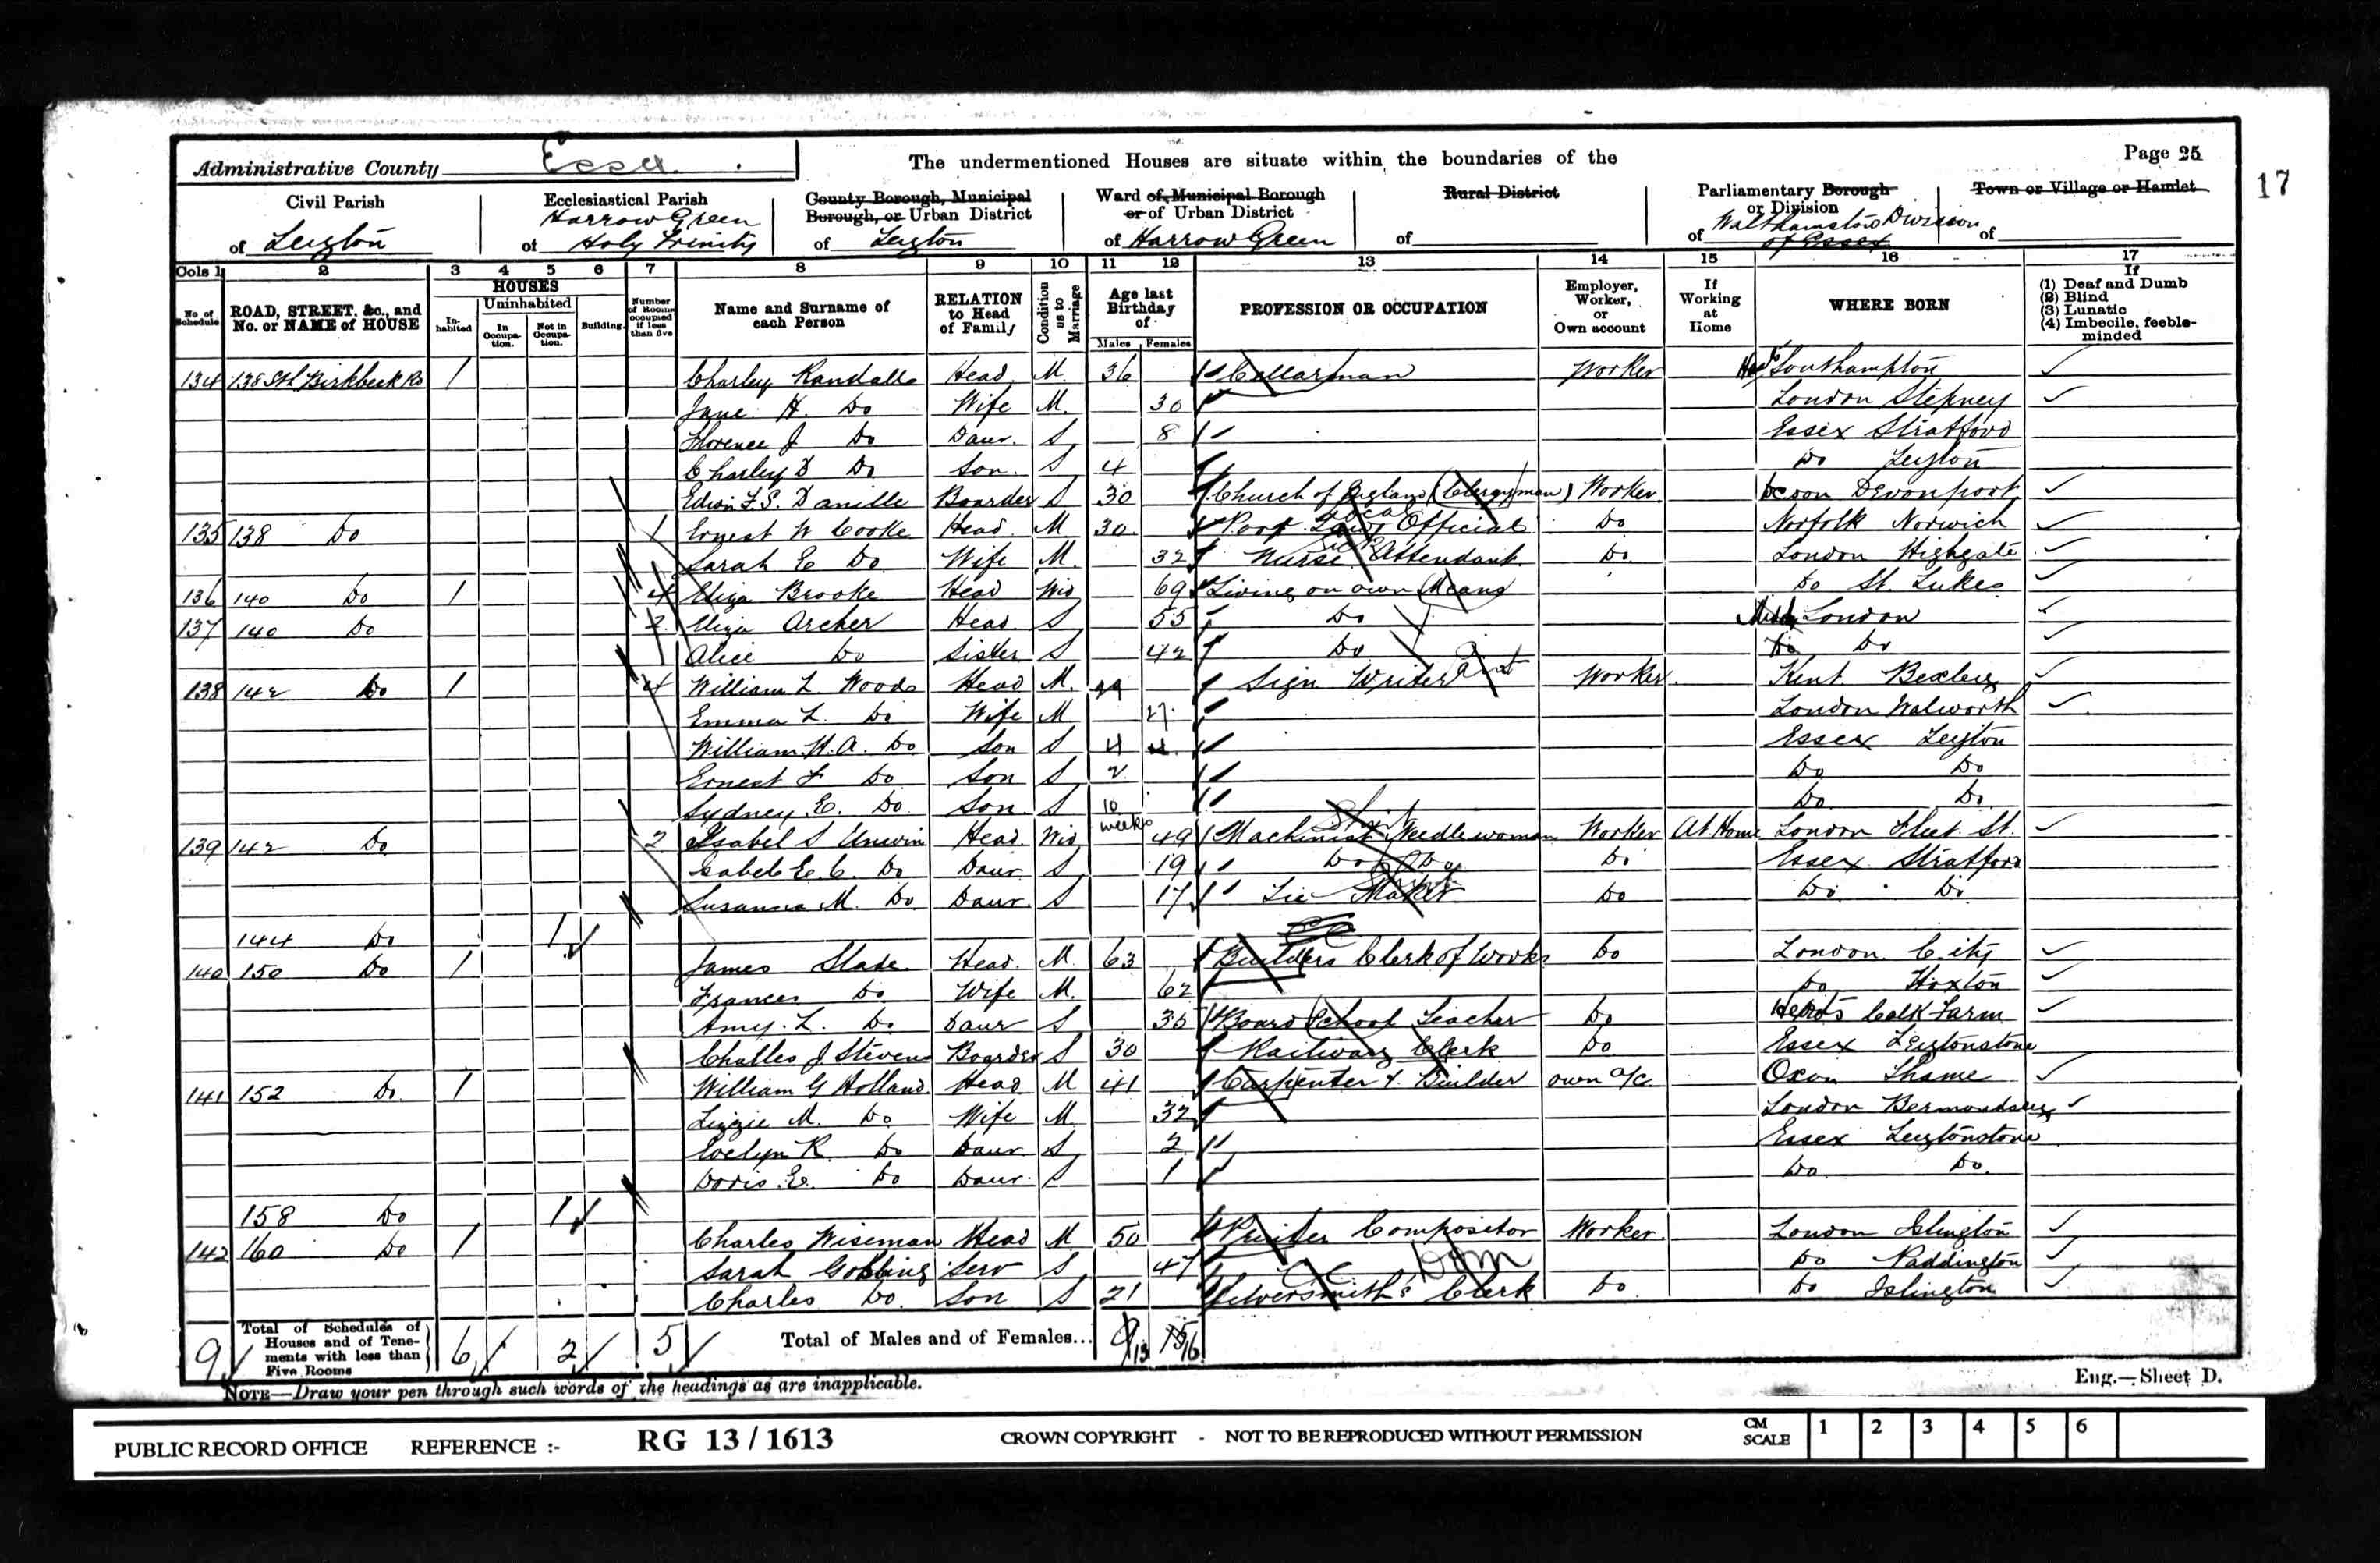 Administrative County Essex
The undermentioned Houses are situate within the boundaries of the
Page 25
17
Civil Parish of Leyton
Ecclesiastical Parish of Harrow Green Holy Trinity
County Borough, Municipal Borough, or Urban District of Leyton
Ward of Municipal Borough or of Urban District of Harrow Green
Rural District of
Parliamentary Borough or Division of Walthamstow Division of Essex
Town or Village or Hamlet of
Cols 1 2 3 4 5 6 7 8 9 10 11 12 13 14 15 16 17
No of Schedule
ROAD, STREET, &c., and No. or NAME of HOUSE
HOUSES
Inhabited
Uninhabited
In Occupation.
Not in Occupation.
Building.
Number of Rooms occupied if less than five
Name and Surname of each Person
RELATION to Head of Family
Condition as to Marriage
Age last Birthday of
Males Females
PROFESSION OR OCCUPATION
Employer, Worker, or Own account
If Working at Home
WHERE BORN
If
(1) Deaf and Dumb
(2) Blind
(3) Lunatic
(4) Imbecile, feeble-minded
134 138 Sth Birkbeck Rd 1 Charley Randall Head M 36 Cellarman Worker Hants Southampton
Jane H. Do Wife M. 30 London Stepney
Florence J Do Daur. S 8 Essex Stratford
Charley Do Son. S 4 Do Leyton
Edwin F.S. Boarder S 30 Church of England (Clergyman) Worker Devon Devonport
135 138 Do 1 Ernest W Cooke Head M 30 Poor Law Official Do Norfolk Norwich
Sarah E Do Wife M. 32 Nurse Attendant Do London Highgate
136 140 Do 1 4 Eliza Brooke Head Wid 69 Living on own Means Do St. Lukes
137 140 Do 2 Eliza Archer Head S 55 Do London
Alice Do Sister S 42 Do Do Do
138 142 Do 1 4 William L Woods Head M. Sign Writer Worker. Kent Bexley
Emma L. Do Wife M 27 London Walworth
William H.A. Do Son S 4 4 Essex Leyton
Ernest F Do Son S 2 Do Do
Sydney E. Do Son S 10 weeks Do Do
139 142 Do 2 Isabel S Unwin Head. Wid 49 Machinist Needlewoman Worker At Home London Fleet St.
Isabel E.C. Do Daur S 19 Do Do Do Essex Stratford
Susanna M. Do Daur. S 17 Tie Maker Do Do Do
144 Do 1
140 150 Do 1 James Slade Head. M. 63 Builders Clerk of Works Do London City
Frances Do Wife M. 62 Do Hoxton
Amy. L. Do Daur S 35 Board School Teacher Do Herts Farm
Charles J Stevens Boarder S 30 Railway Clerk Do Essex Leytonstone
141 152 Do 1 William G Holland Head M 41 Carpenter & Builder own a/c Oxon Thame
Lizzie M. Do Wife M. 32 London Bermondsey
Evelyn R Do Daur S 2 Essex Leytonstone
Doris E. Do Daur. S 1 Do Do
158 Do 1
142 160 Do 1 Charles Wiseman Head M 50 Printer Compositor Worker London Islington
Sarah Gobbing Serv S 47 Dom Do Paddington
Charles Do. Son S 21 Silversmith's Clerk Do Do Islington
9 Total of Schedules of Houses and of Tenements with less than Five Rooms 6 2 5 Total of Males and of Females... 9 13 15 16
NOTE—Draw your pen through such words of the headings as are inapplicable.
Eng.—Sheet D.
PUBLIC RECORD OFFICE REFERENCE :- RG 13 / 1613 CROWN COPYRIGHT - NOT TO BE REPRODUCED WITHOUT PERMISSION CM SCALE 1 2 3 4 5 6